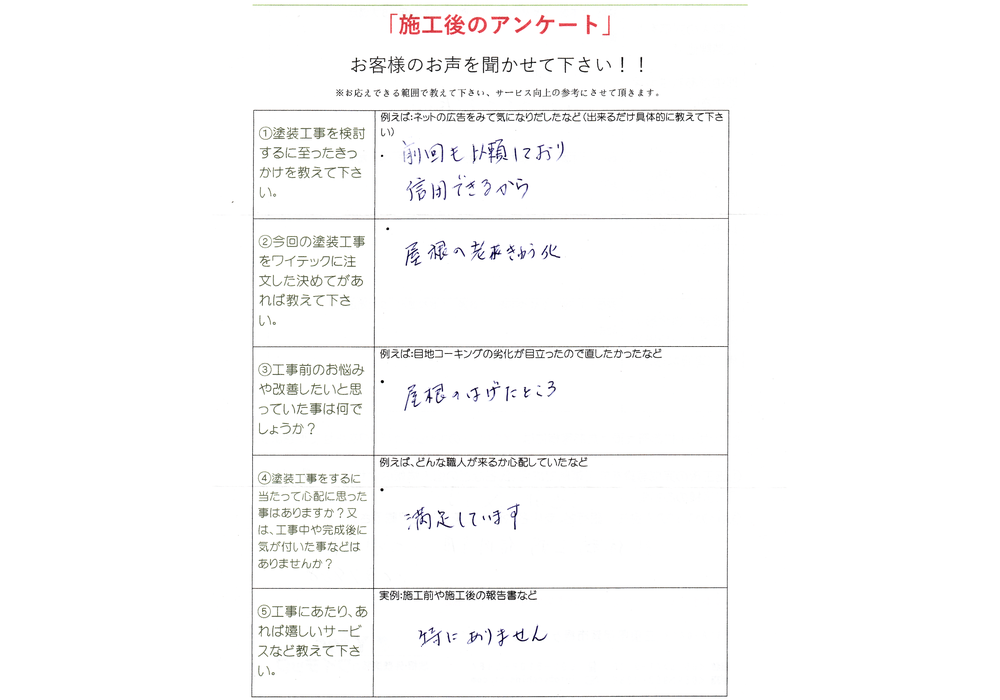 「施工後のアンケート」
お客様のお声を聞かせて下さい！！
※お応えできる範囲で教えて下さい、サービス向上の参考にさせて頂きます。
①塗装工事を検討
するに至ったきっ
かけを教えて下さ
い。
例えば:ネットの広告をみて気になりだしたなど(出来るだけ具体的に教えて下さ
い)
・前回も依頼しており
信用できるから
②今回の塗装工事
をワイテックに注
文した決めてがあ
れば教えて下さ
い。
・
屋根の老朽きゅう化
③工事前のお悩み
や改善したいと思
っていた事は何で
しょうか？
例えば:目地コーキングの劣化が目立ったので直したかったなど
・
屋根のはげたところ
④塗装工事をするに
当たって心配に思った
事はありますか？又
は、工事中や完成後に
気が付いた事などは
ありませんか？
例えば、どんな職人が来るか心配していたなど
・
満足しています
⑤工事にあたり、あ
れば嬉しいサービ
スなど教えて下さ
い。
実例:施工前や施工後の報告書など
特にありません